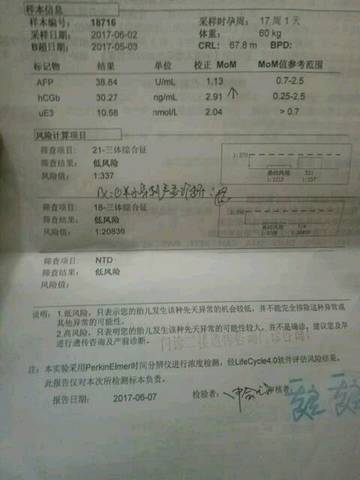 样本信息
样本编号： 18716 采样时孕周： 17 周 1 天
采样日期： 2017-06-02 体重： 60 kg
B超日期： 2017-05-03 CRL： 67.8 m BPD：
标记物 结果 单位 校正 MoM MoM值参考范围
AFP 38.84 U/mL 1.13 0.7-2.5
hCGb 30.27 ng/mL 2.91 ↑ 0.25-2.5
uE3 10.58 nmol/L 2.04 > 0.7
风险计算项目
筛查项目： 21-三体综合征
筛查结果： 低风险
风险值： 1:337
筛查项目： 18-三体综合征
筛查结果： 低风险
风险值： 1:20836
筛查项目： NTD
筛查结果： 低风险
风险值：
说明： 1.低风险，只表示您的胎儿发生该种先天异常的机会较低，并不能完全排除这种异常或
其他异常的可能性。
2.高风险，只表明您的胎儿发生该种先天异常的可能性较大，并不是确诊，建议您及早
进行遗传咨询及产前诊断。
注：本实验采用PerkinElmer时间分辨仪进行浓度检测，经LifeCycle4.0软件评估风险结果。
此报告仅对本次所检测标本负责。
报告日期： 2017-06-07 检验者：